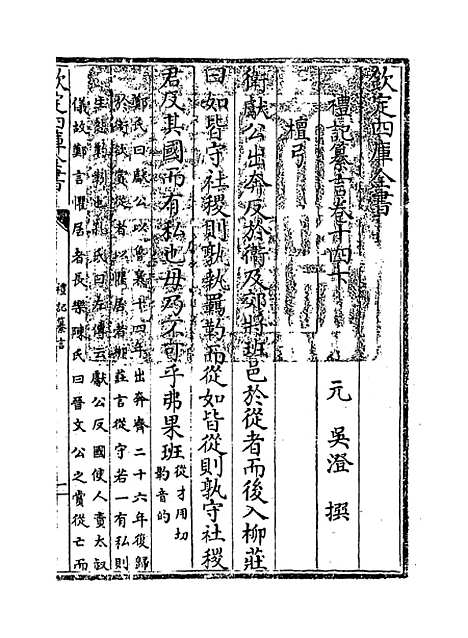 欽定四庫全書
禮記纂言卷十四下
元 吳澄 撰
檀弓
衛獻公出奔反於衛及郊將班邑於從者而後入柳莊
曰如皆守社稷則孰執羈靮而從如皆從則孰守社稷
君反其國而有私也毋乃不可乎弗果班從才用切
靮音的
鄭氏曰獻公以魯襄十四年出奔齊二十六年復歸
於衛欲賞從者以懼居者柳莊言從守若一有私則
生怨 孔氏曰左傳云獻公反國使人責太叔
儀故鄭言懼居者長樂陳氏曰晉文公之賞從亡而
欽定四庫全書
禮記纂言